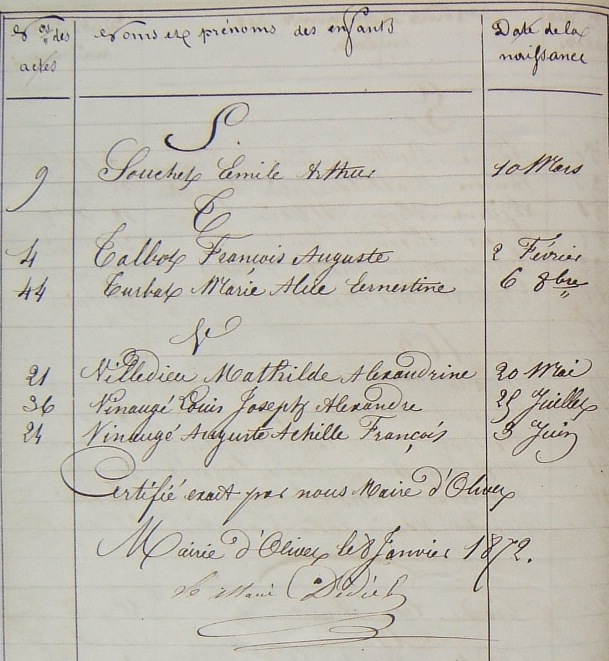 Nos des actes | Noms et prénoms des enfants | Date de la naissance
S.
9 Souchet Emile Arthur 10 Mars
T
4 Talbot François Auguste 2 Février
44 Turbat Marie Alice Ernestine 6 8bre
V
21 Villedieu Mathilde Alexandrine 20 Mai
36 Vinaugé Louis Joseph Alexandre 25 Juillet
24 Vinaugé Auguste Achille François 3 Juin
Certifié exact par nous Maire d'Olivet
Mairie d'Olivet le 8 Janvier 1872.
Le Maire